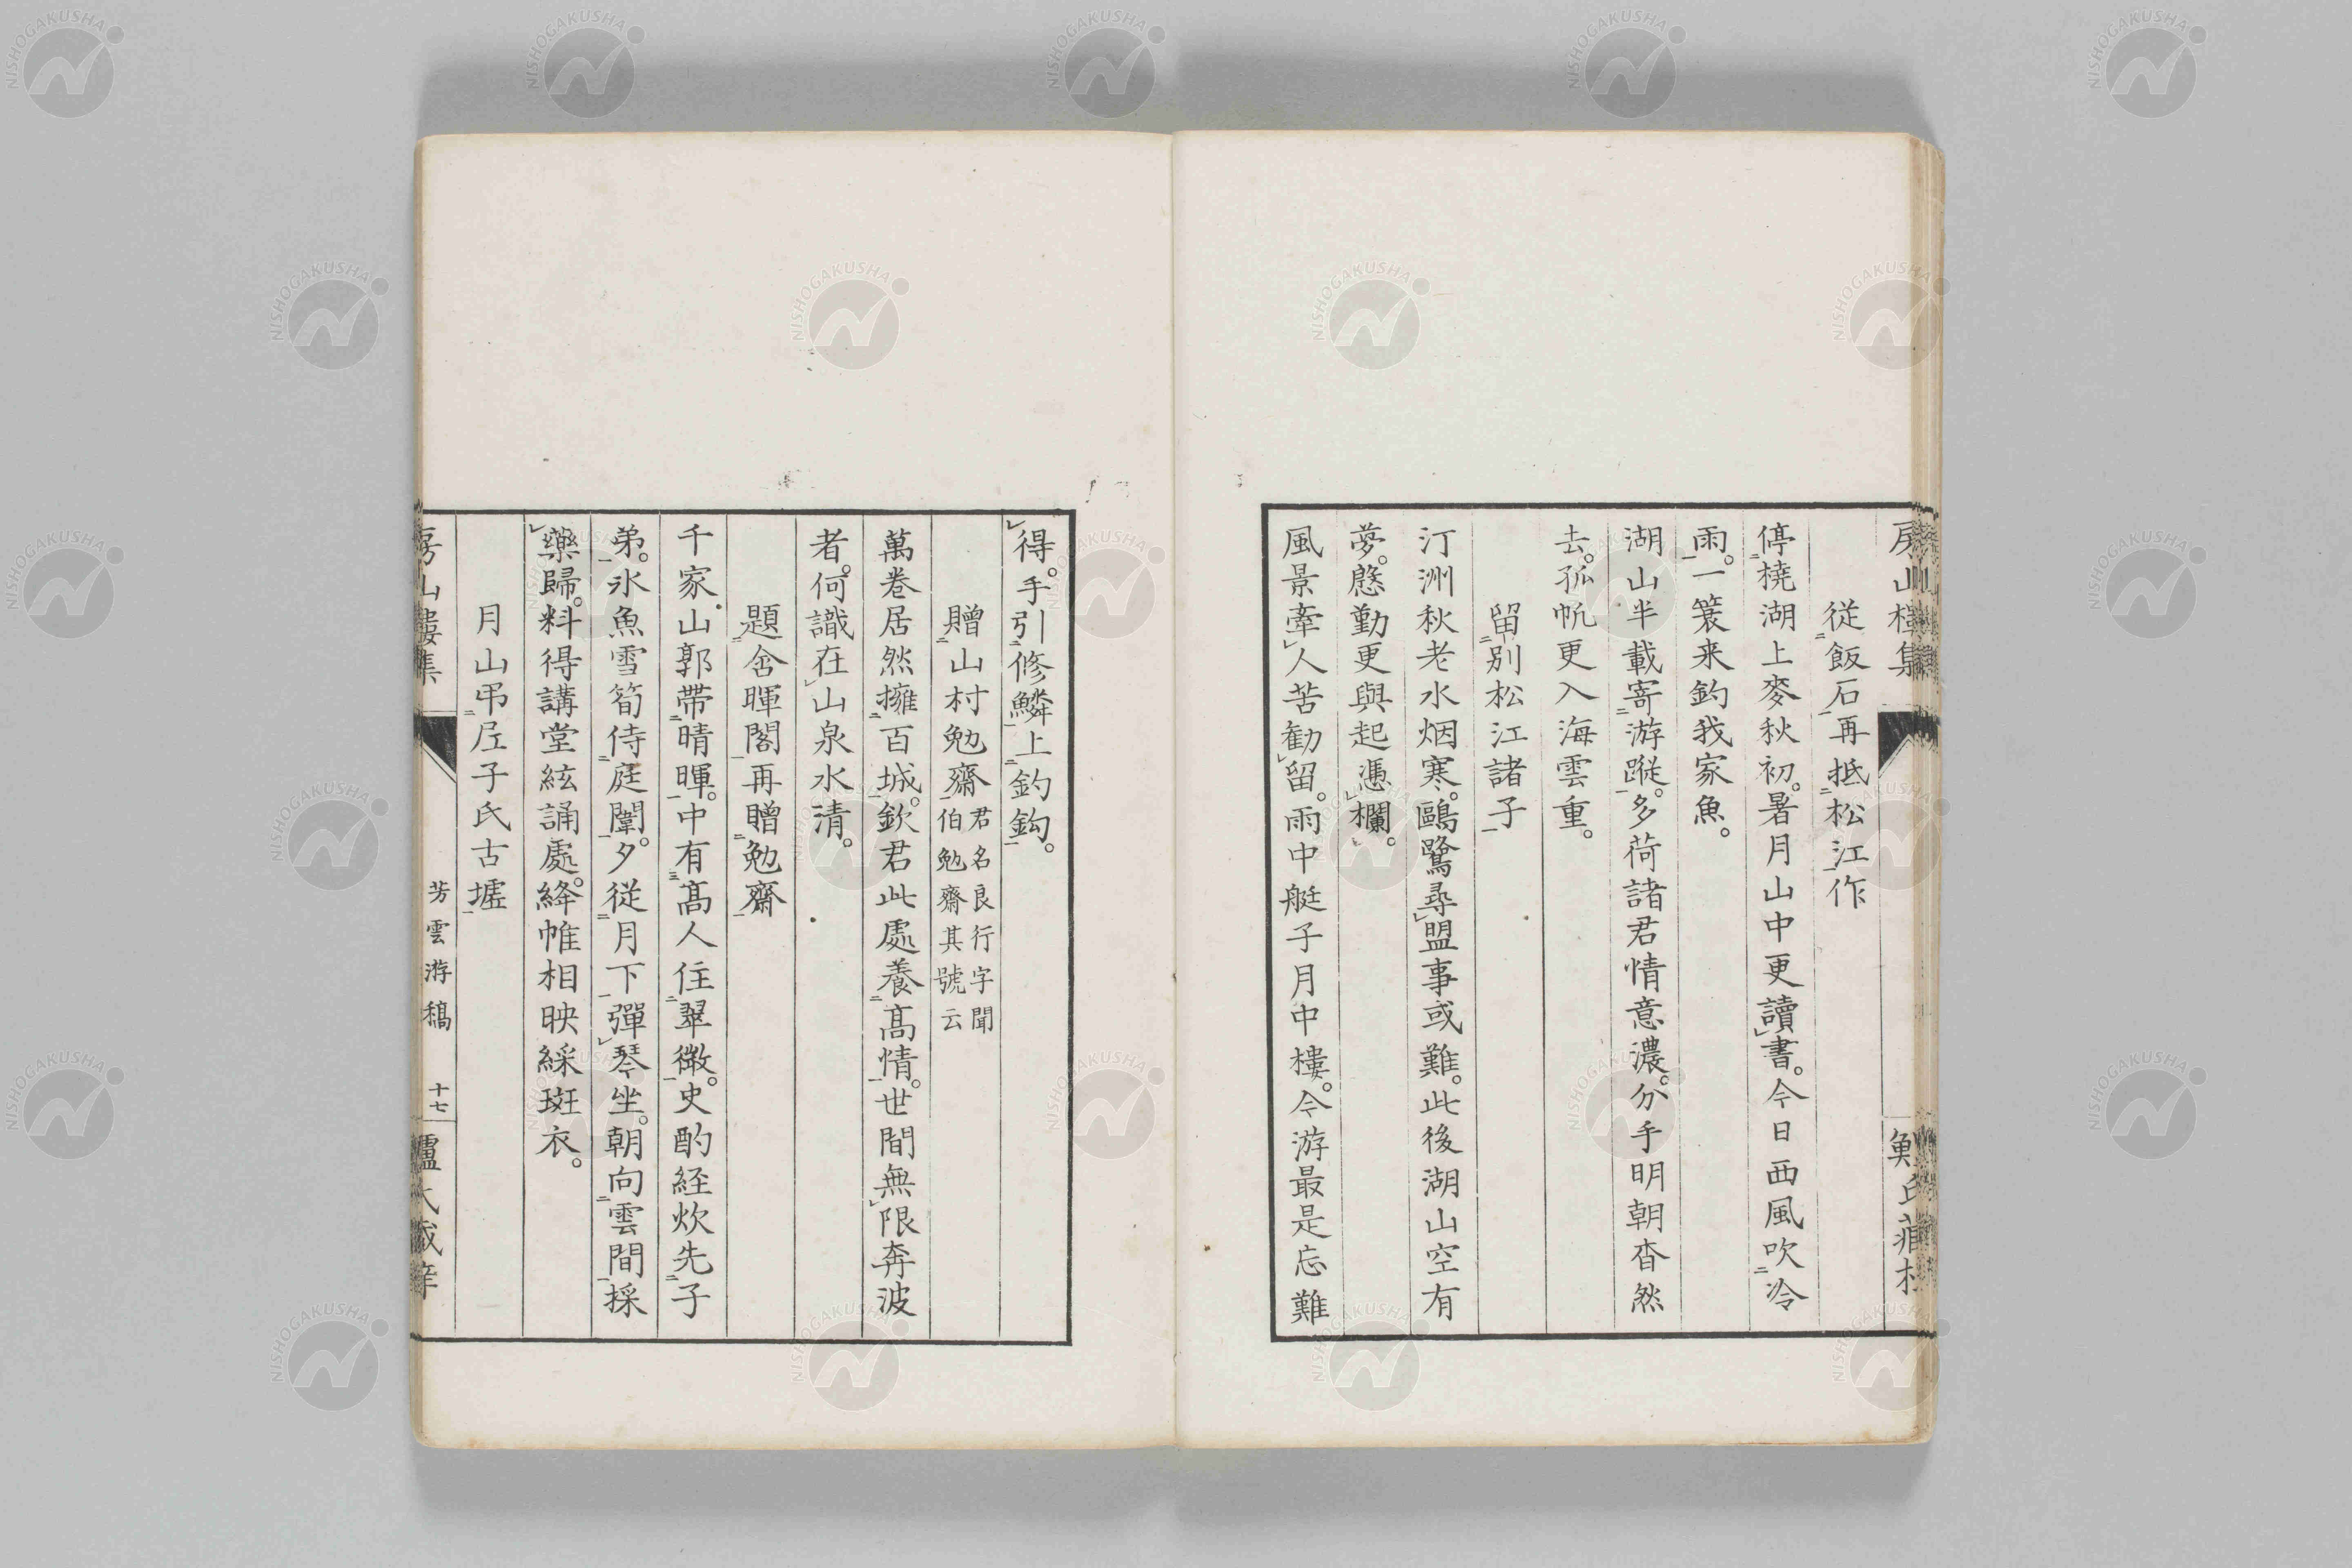 房山樓集
從飯石再抵松江作
停橈湖上麥秋初。暑月山中更讀書。今日西風吹冷
雨。一簑来釣我家魚。
湖山半載寄游蹤。多荷諸君情意濃。分手明朝杳然
去。孤帆更入海雲重。
留別松江諸子
汀洲秋老水烟寒。鷗鷺尋盟事或難。此後湖山空有
夢。慇勤更與起憑欄。
風景牽人苦勸留。雨中艇子月中樓。今游最是忘難
得。手引修鱗上釣鈎。
贈山村勉齋君名良行字聞
伯勉齋其號云
萬巻居然擁百城。欽君此處養髙情。世間無限奔波
者。何識在山泉水清。
題含暉閣再贈勉齋
千家山郭帶晴暉。中有髙人住翠微。史酌経炊先子
弟。氷魚雪筍侍庭闈。夕從月下彈琴坐。朝向雲間採
藥歸。料得講堂絃誦處。絳帷相映綵斑衣。
月山弔尼子氏古墟
房山樓集
芳雲游稿
十七
NISHOGAKUSHA